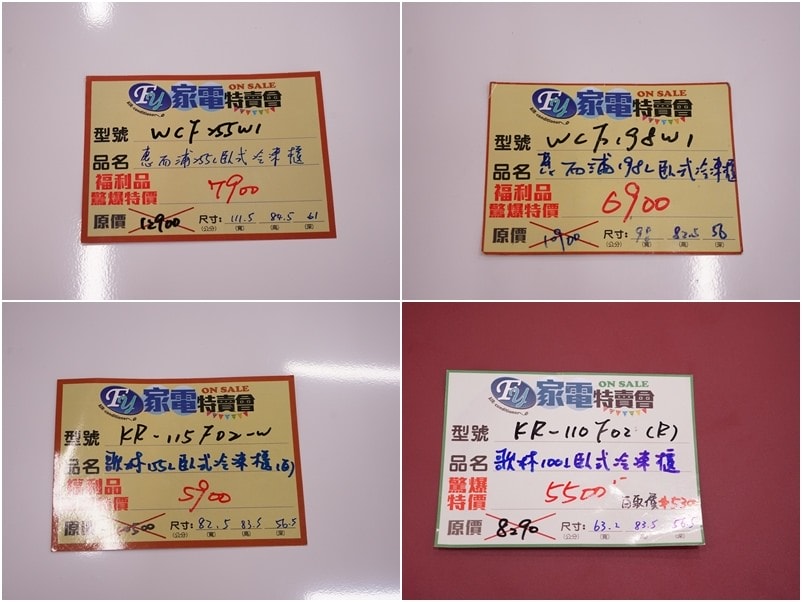 FU 家電特賣會 ON SALE
air conditioner
型號 WCF255W1
品名 惠而浦255L臥式冷凍櫃
福利品
驚爆特價 7900
原價 12900 尺寸: 111.5 84.5 61
(公分) (寬) (高) (深)
FU 家電特賣會 ON SALE
air conditioner
型號 WCF198W1
品名 惠而浦198L臥式冷凍櫃
福利品
驚爆特價 6900
原價 10900 尺寸: 98 82.5 56
(公分) (寬) (高) (深)
FU 家電特賣會 ON SALE
air conditioner
型號 KR-115F02-W
品名 歌林155L臥式冷凍櫃(白)
福利品
驚爆特價 5900
原價 尺寸: 82.5 83.5 56.5
(公分) (寬) (高) (深)
FU 家電特賣會 ON SALE
air conditioner
型號 KR-110F02(R)
品名 歌林100L臥式冷凍櫃
驚爆
特價 5500
自取價$530
原價 8290 尺寸: 63.2 83.5 56.5
(公分) (寬) (高) (深)